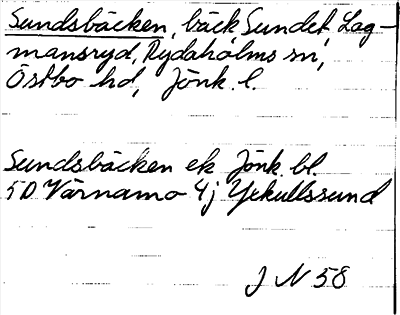 Sundsbäcken, bäck Sundet, Lag-
mansryd, Rydaholms sn,
Östbo hd, Jönk. l.
Sundsbäcken ek Jönk. bl.
5D Värnamo 4j Yxkullssund
J N 58